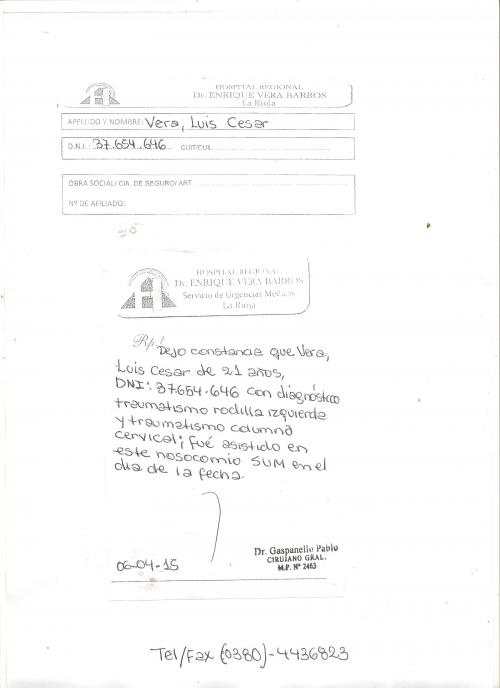 HOSPITAL REGIONAL
Dr. ENRIQUE VERA BARROS
La Rioja
APELLIDO Y NOMBRE: Vera, Luis Cesar
D.N.I. : 37.654.646 CUIT/CUIL
OBRA SOCIAL/ CIA. DE SEGURO/ ART
Nº DE AFILIADO:
HOSPITAL REGIONAL
Dr. ENRIQUE VERA BARROS
Servicio de Urgencias Medicas
La Rioja
Rp/ Dejo constancia que Vera,
Luis Cesar de 21 años,
DNI: 37.654.646 con diagnóstico
traumatismo rodilla izquierda
y traumatismo columna
cervical; fué asistido en
este nosocomio SUM en el
día de la fecha.
06-04-15
Dr. Gaspanello Pablo
CIRUJANO GRAL.
M.P. Nº 2463
Tel/Fax (0380)-4436823